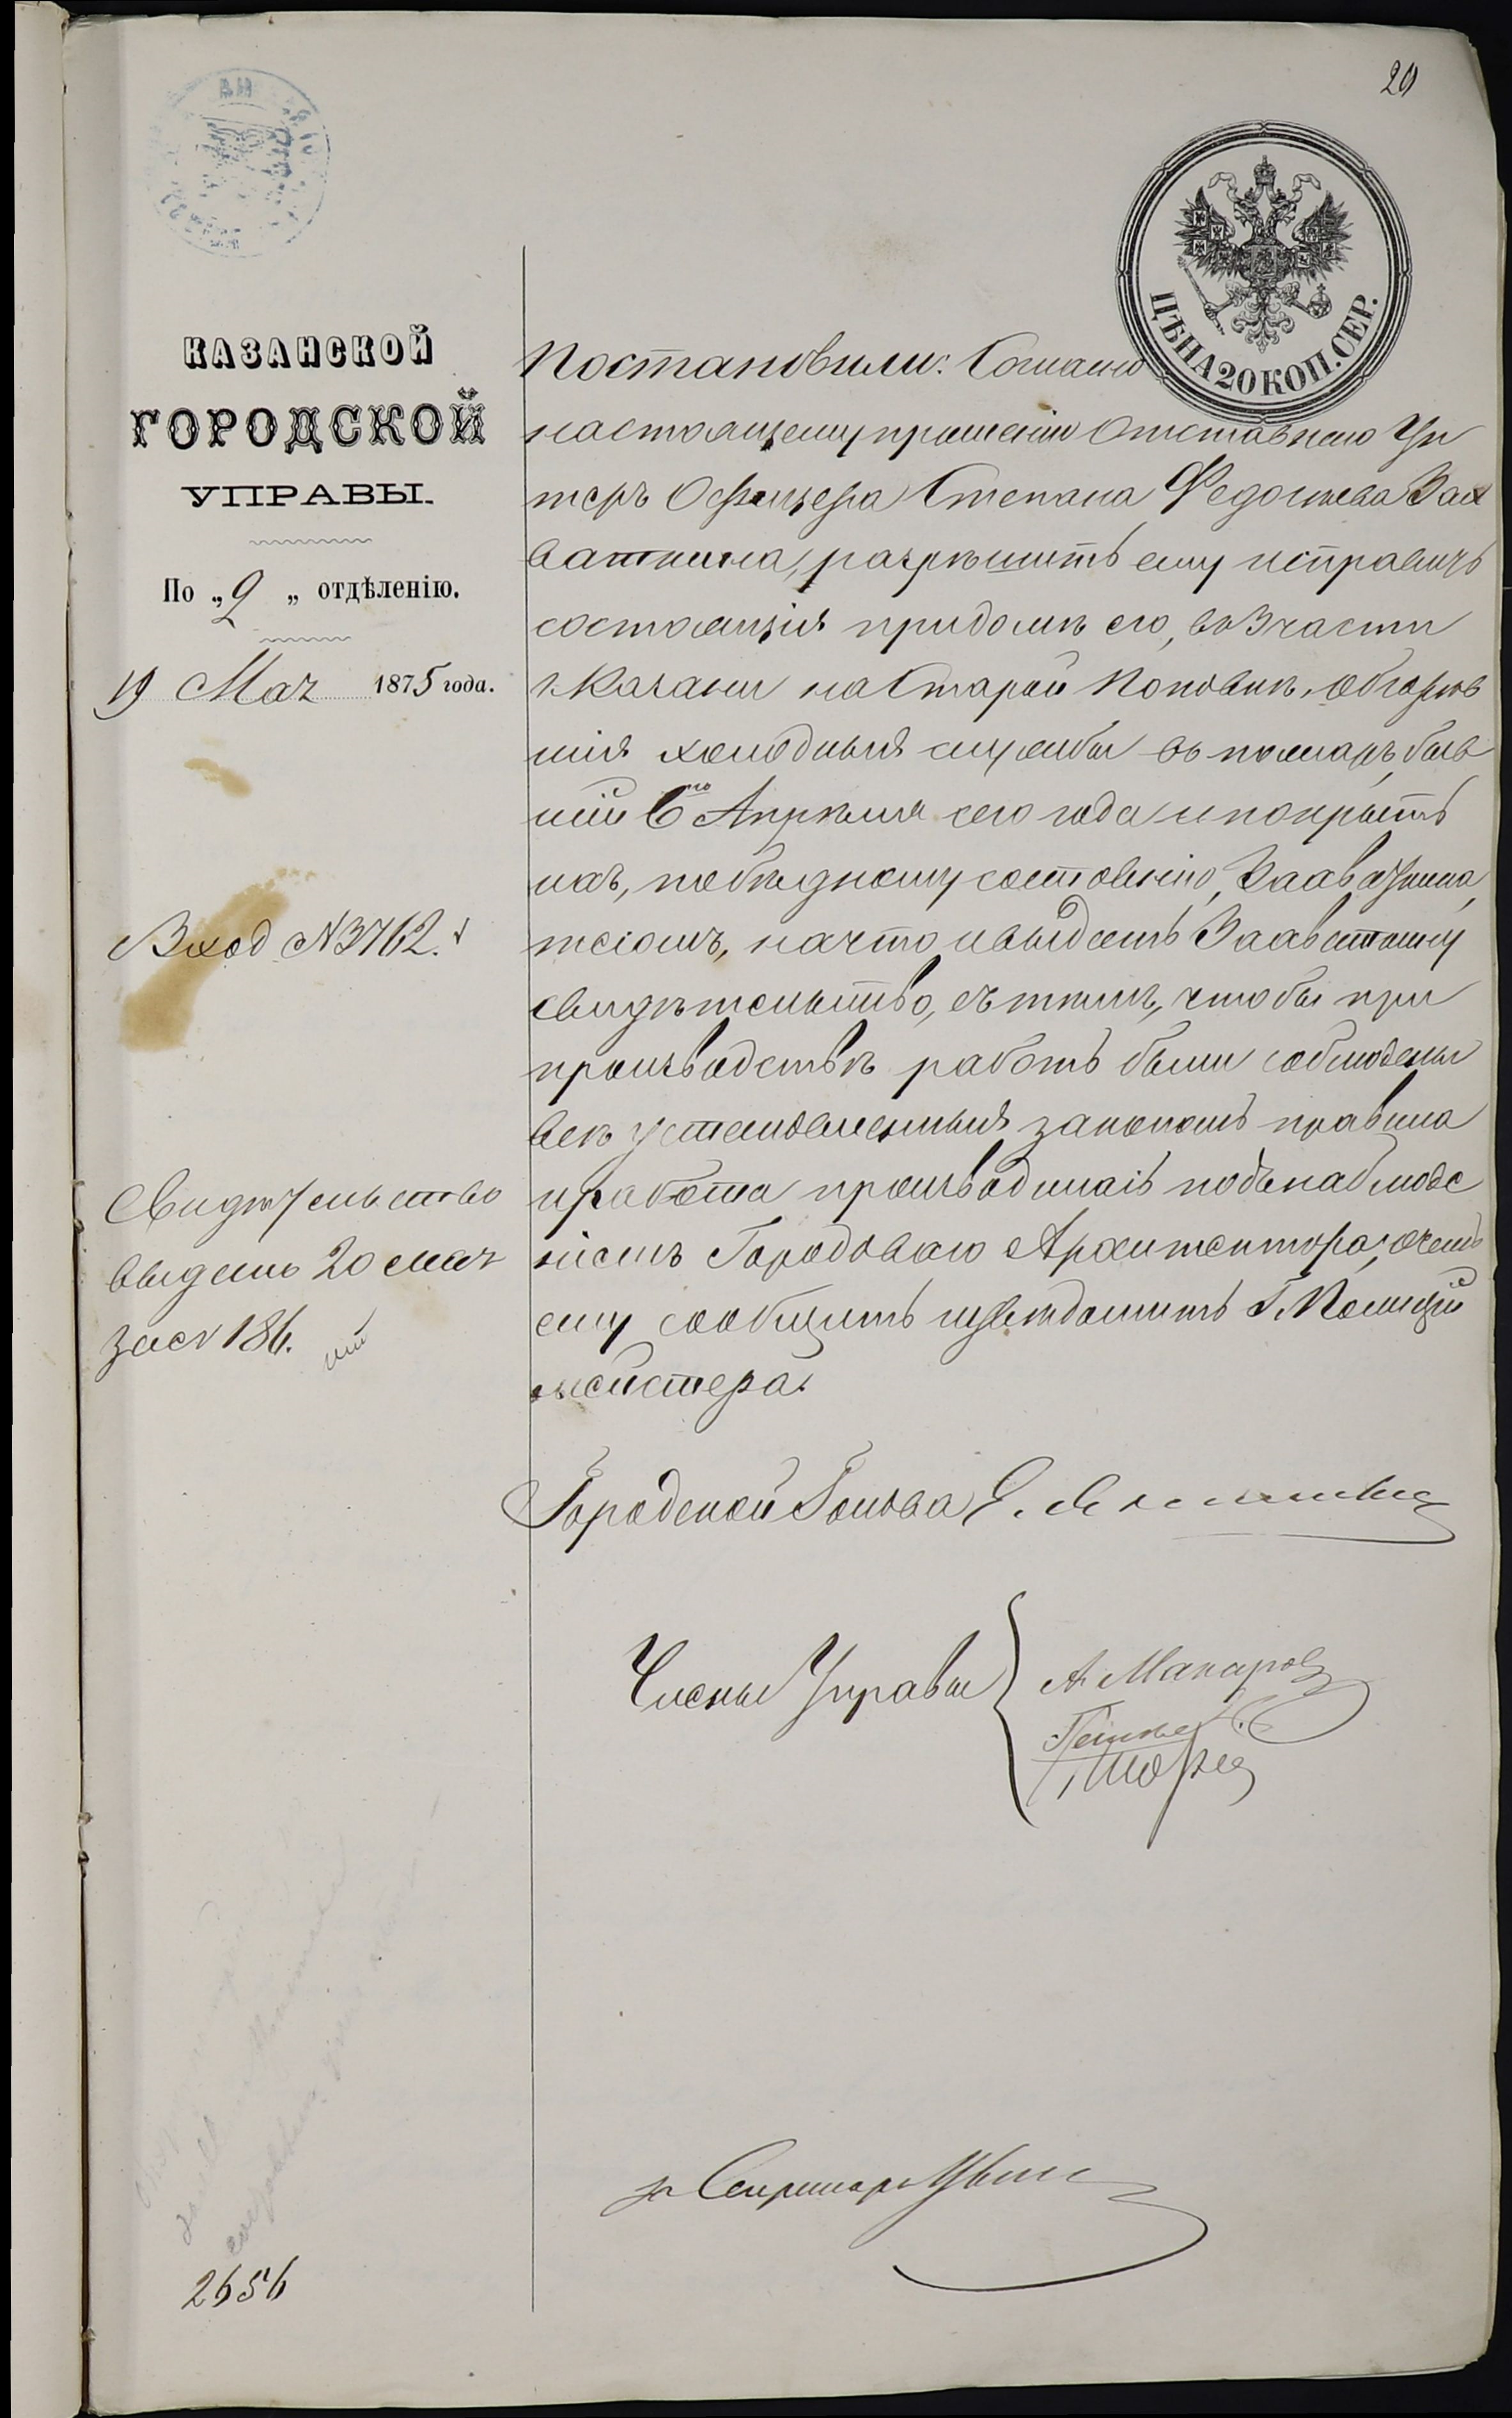 20
ЦѢНА 20 КОП. СЕР.
КАЗАНСКОЙ
ГОРОДСКОЙ
УПРАВЫ.
По „2„ отдѣленію.
19 Мая 1875 года.
Вход №3762.
Свидѣтельство
выдано 20 мая
за № 186.
Постановили: Согласно
настоящему прошенію Отставнаго Ун
теръ Офицера Степана Федосѣева Зах
ваткина, разрѣшить ему исправить
состоящія при домѣ его, во 3 части
г. Казани на Старой Поповкѣ, обгорѣв
шія холодныя службы въ пожаръ, быв
шій 6го Апрѣля сего года и покрыть
ихъ, по бѣдному состоянію,
тесомъ, на что и выдать
свидѣтельство, съ тѣмъ, чтобы при
производствѣ работъ были соблюдены
всѣ установленныя закономъ правила
и работа производилась подъ наблюде
ніемъ Городоваго Архитектора, о чемъ
ему сообщить и увѣдомить Г. Полицій
мейстера.
Городской Голова
Члены Управы
А. Макаров
за Секретаря
2656